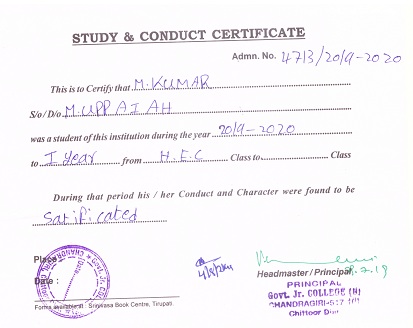 STUDY & CONDUCT CERTIFICATE
Admn. No. 4713/2019-2020
This is to Certify that M.KUMAR
S/o / D/o M.UPPAIAH
was a student of this institution during the year 2019-2020
to I year from H.E.C Class to Class
During that period his / her Conduct and Character were found to be
Satificated
Place
Date :
Headmaster / Principal
PRINCIPAL
GOVT. Jr. COLLEGE
CHANDRAGIRI
Chittoor Dist
Forms available at : Srinivasa Book Centre, Tirupati